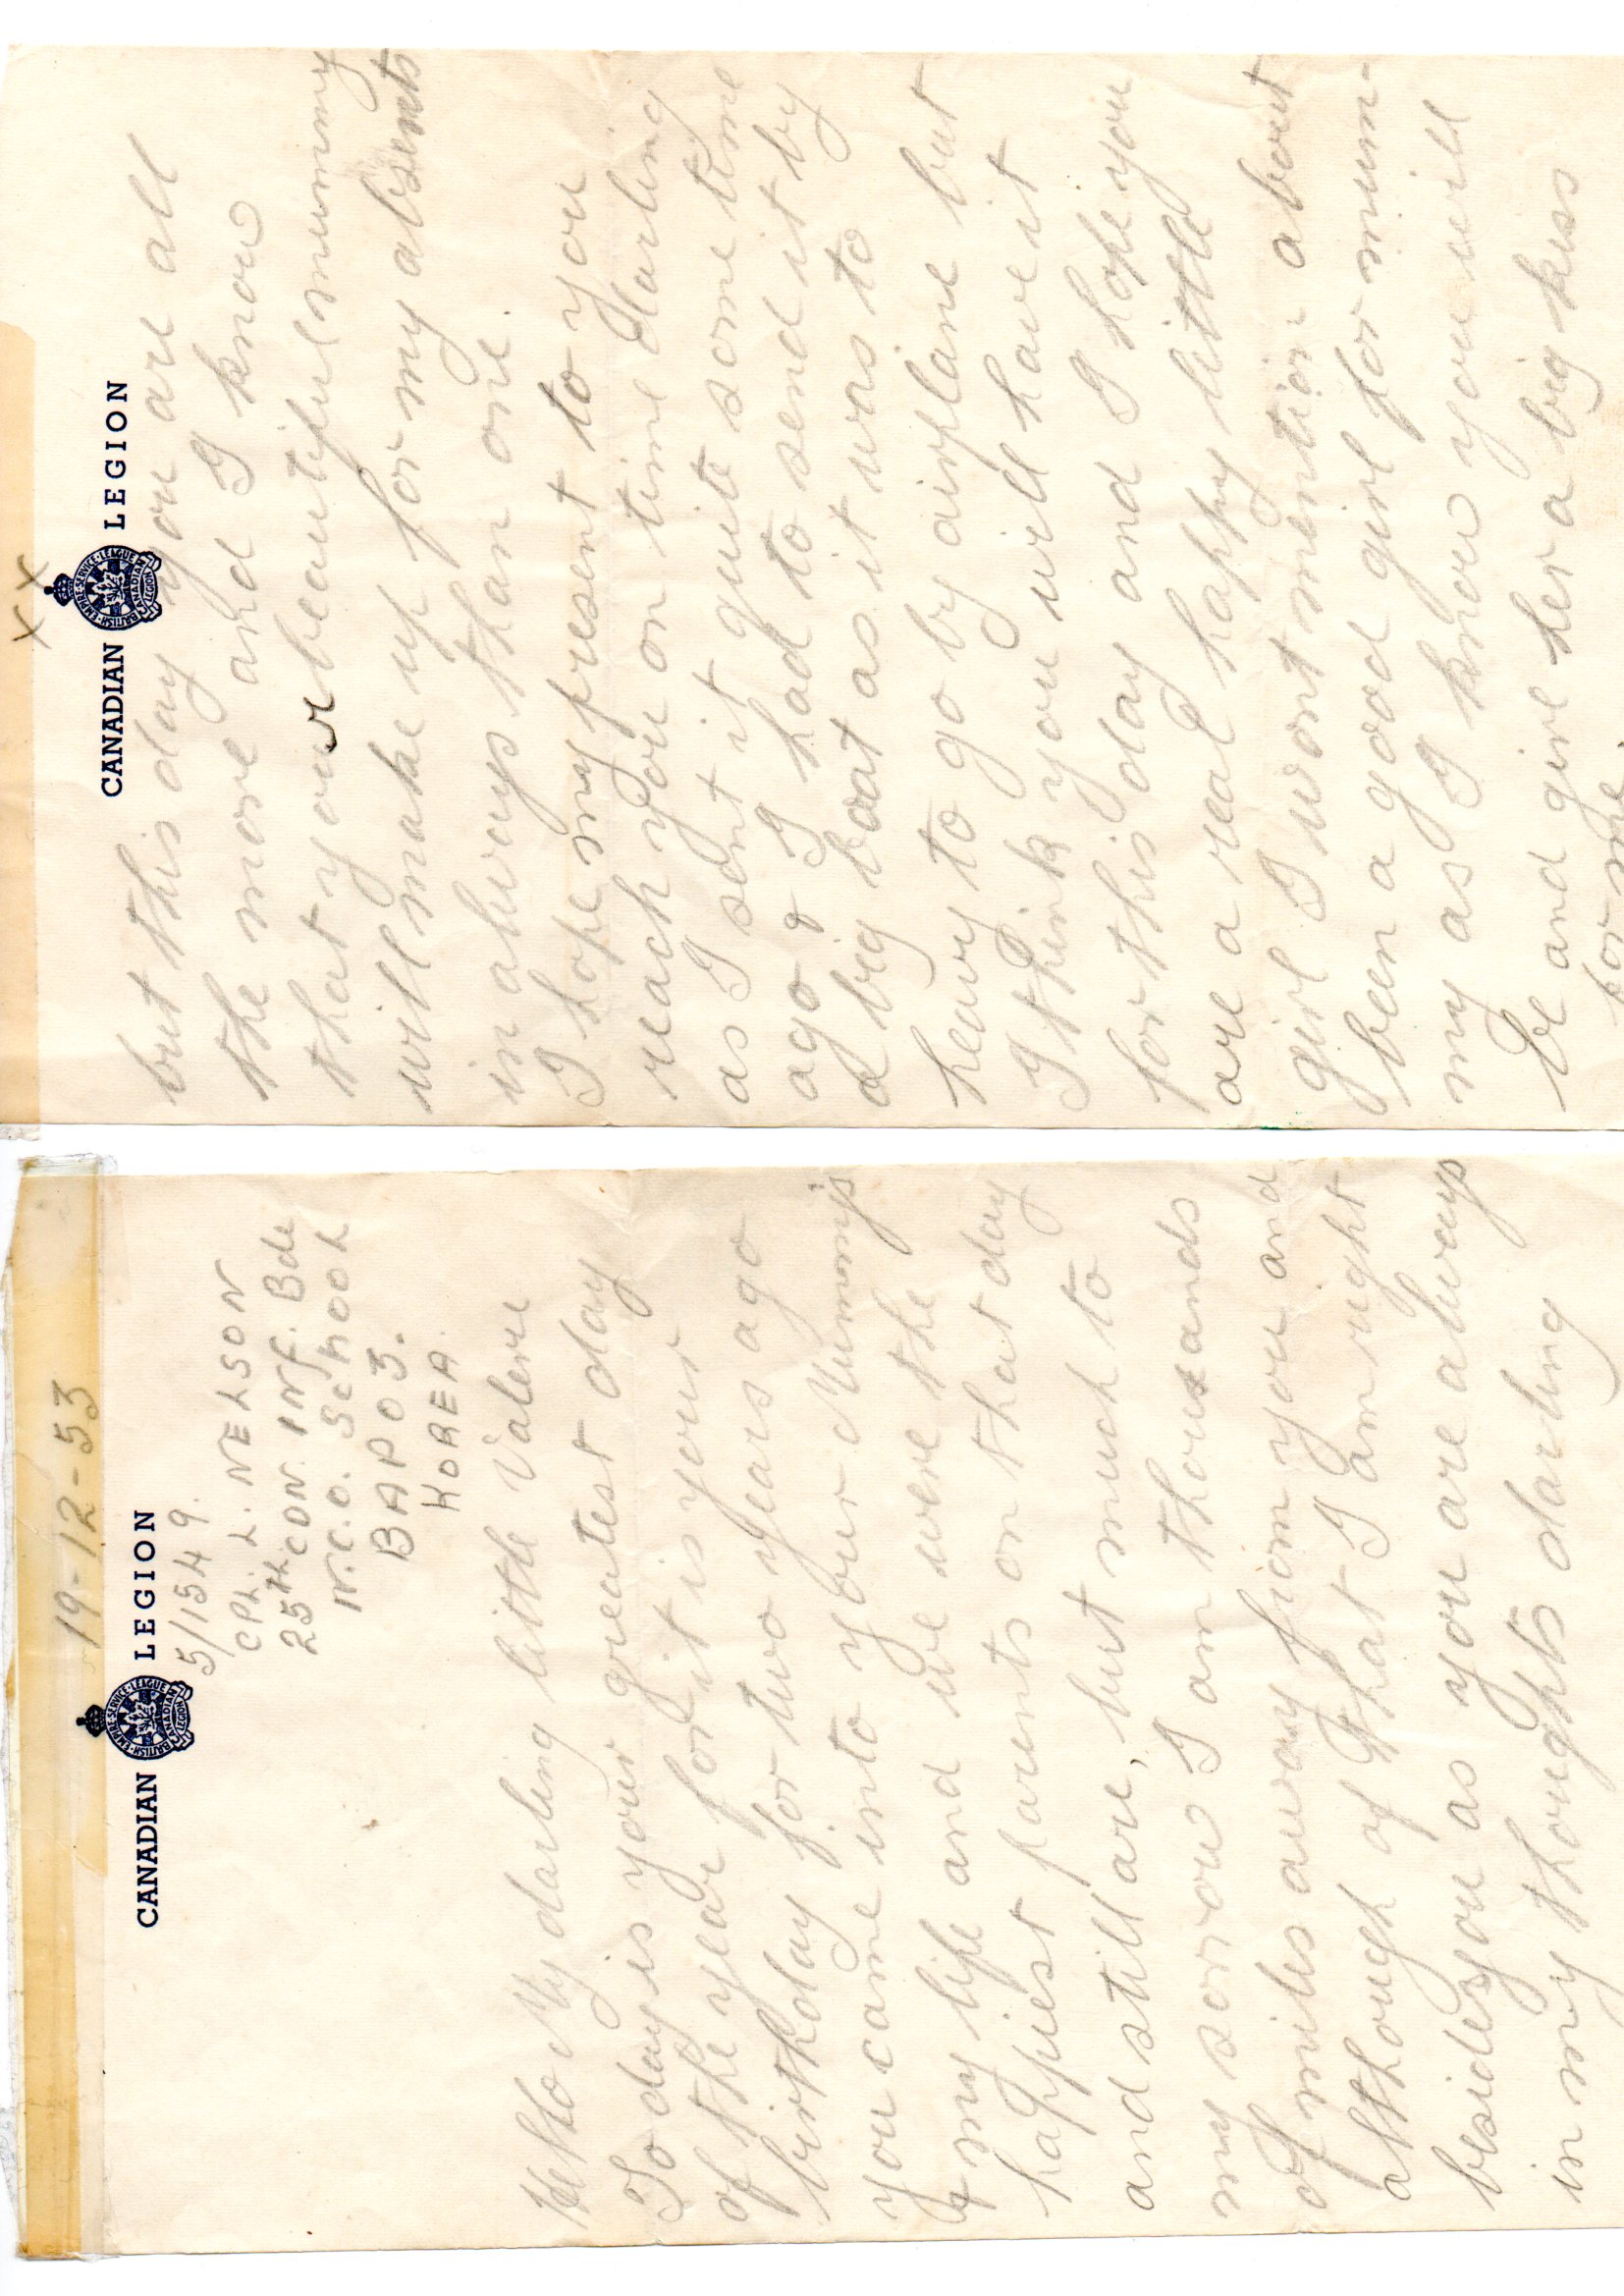 19-12-53
CANADIAN LEGION
BRITISH·EMPIRE·SERVICE·LEAGUE
CANADIAN
LEGION
5/1549.
CPL. L. NELSON
25th CDN. INF. Bde
N.C.O. SCHOOL
BAPO 3.
KOREA.
Hello My darling little Valerie
To day is your greatest day
of the year for it is your
birthday for two years ago
you came into your Mummys
& my life and we were the
happiest parents on that day
and still are, but much to
my sorrow I am thousands
of miles away from you and
although of that I am right
beside you as you are always
in my thoughts darling
X X
CANADIAN LEGION
BRITISH·EMPIRE·SERVICE·LEAGUE
CANADIAN
LEGION
but this day you are all
the more and I know
that your beautiful mummy
will make up for my absents
in always than one.
I hope my present to you
reach you on time darling
as I sent it quite some time
ago & I had to send it by
a big boat as it was to
heavy to go by airplane but
I think you will have it
for this day and I hope you
are a real happy little
girl I wont mention about
been a good girl for mum-
my as I know you will
be and give her a big kiss
for me